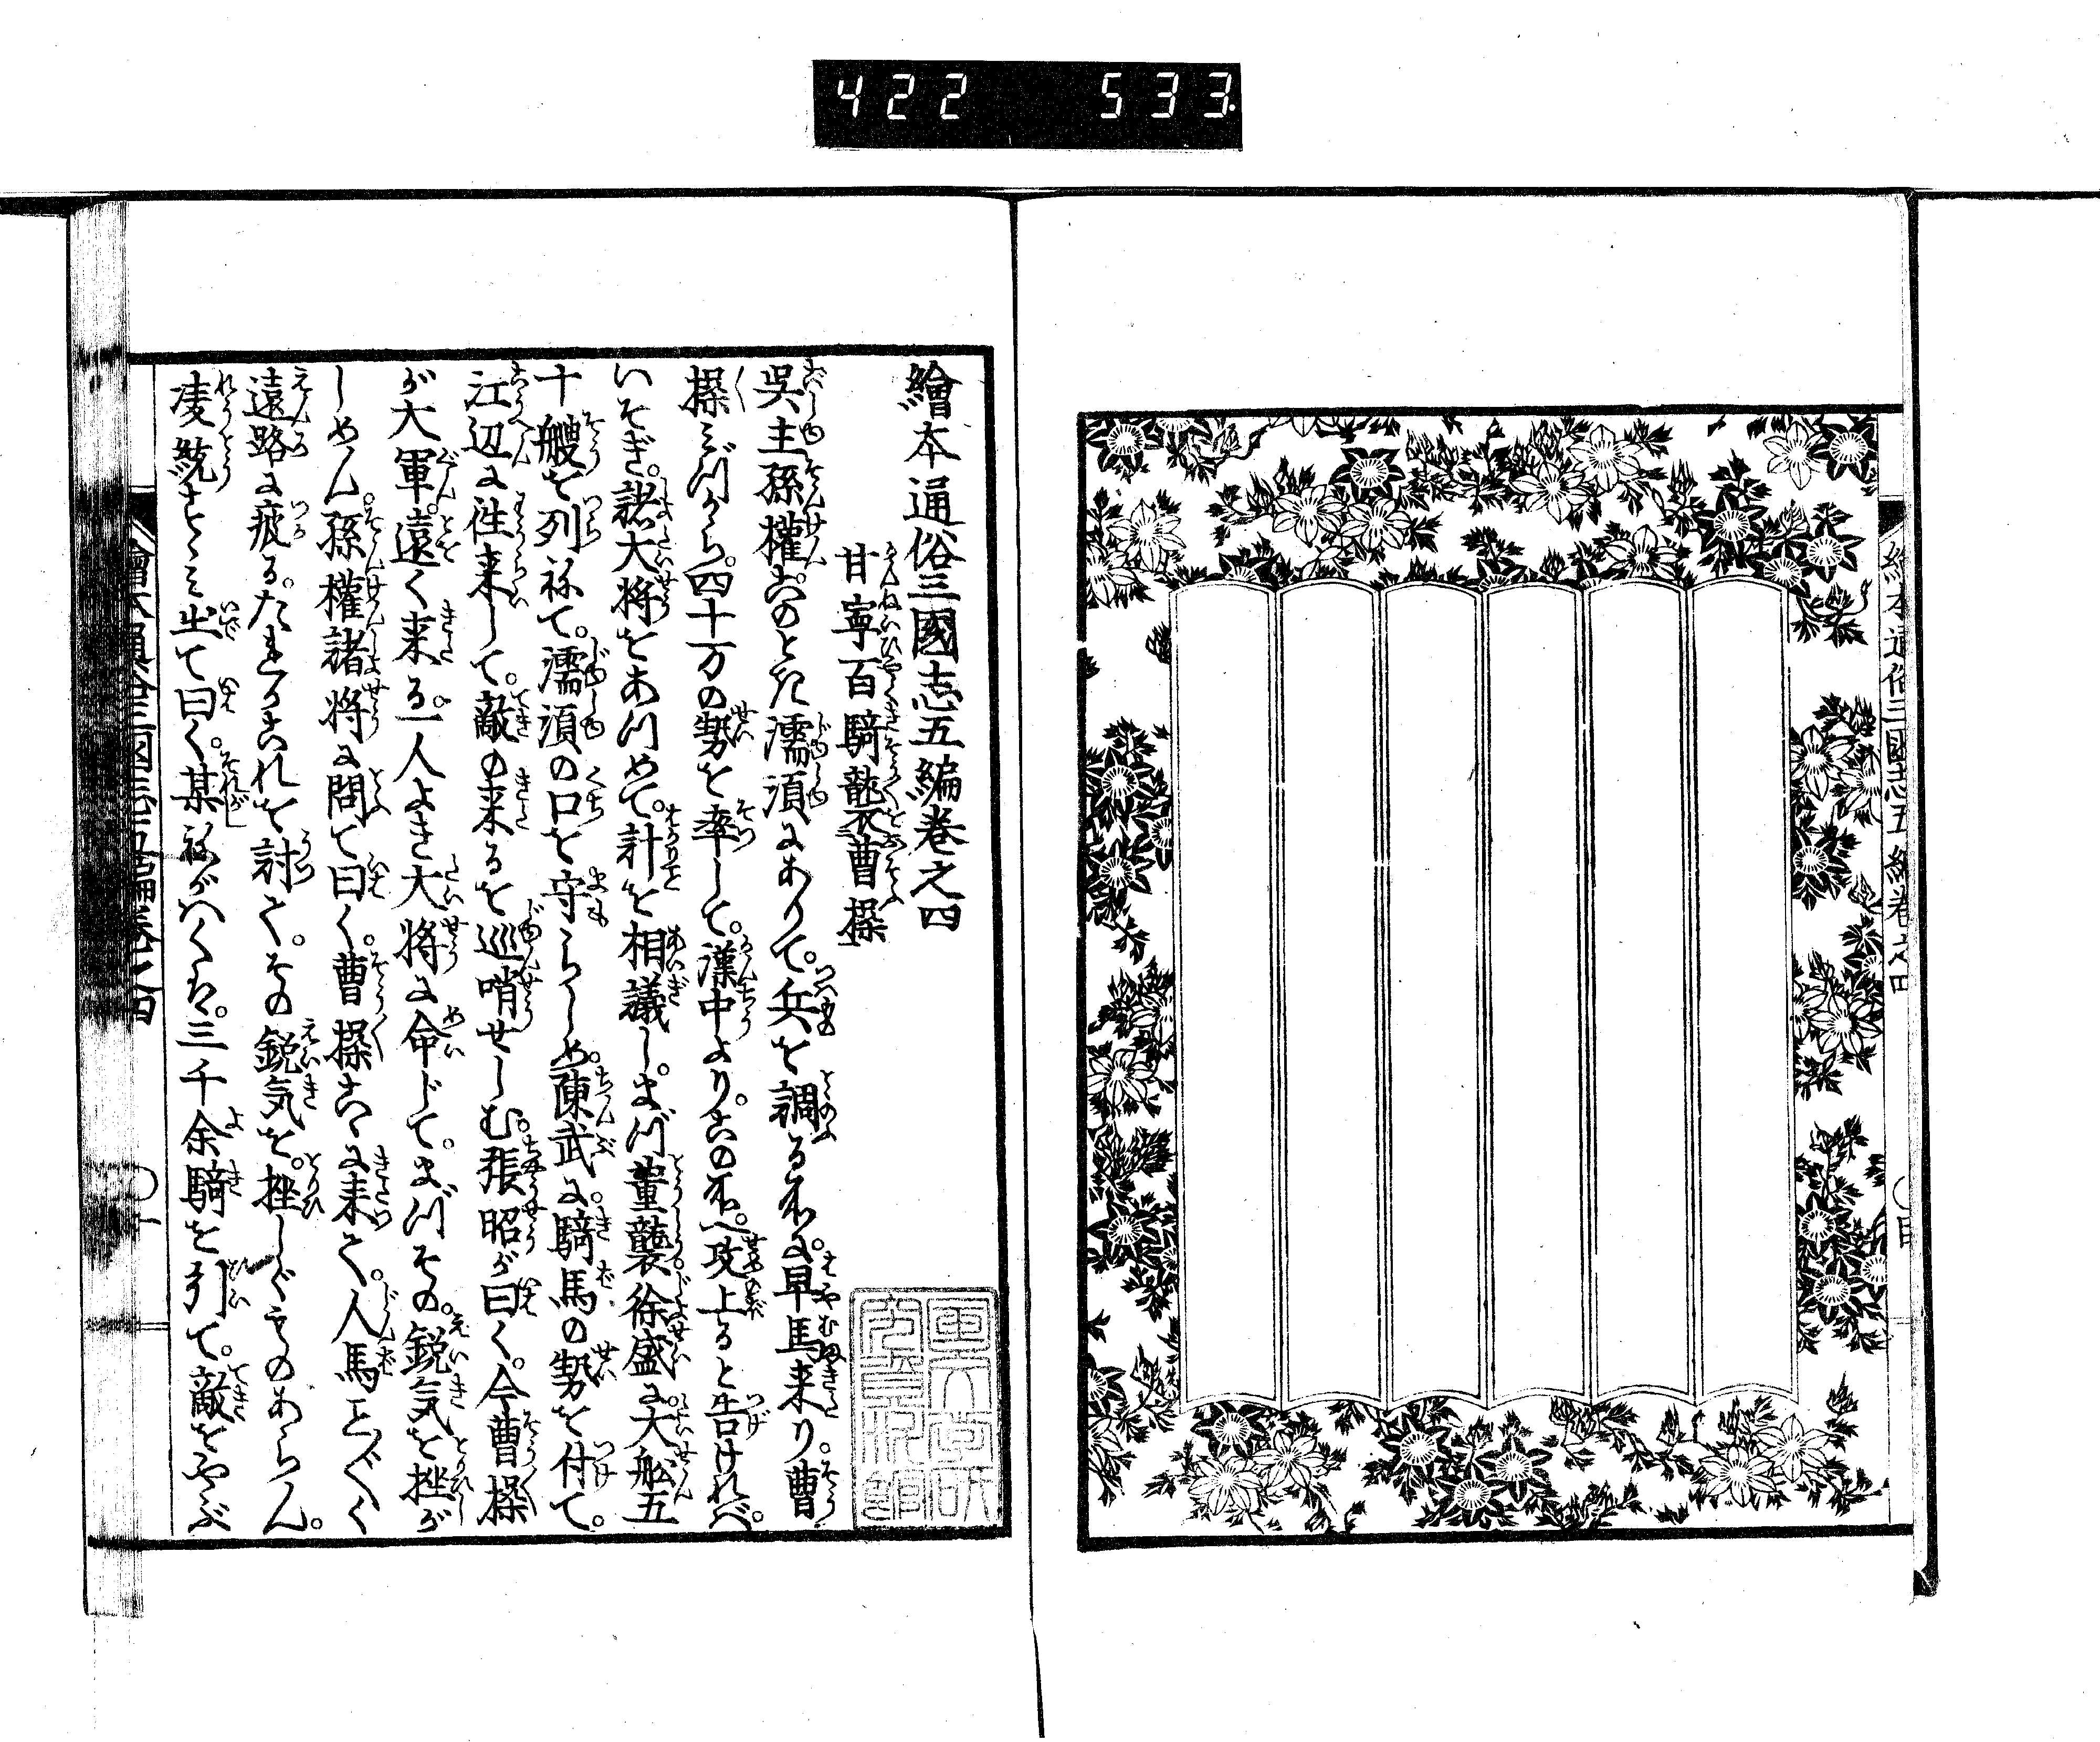 422 533
繪本通俗三國志五編卷之四
繪本通俗三國志五編卷之四
甘寧百騎襲曹操
呉主孫權このとき濡須にありて。兵を調る所に。早馬来り。曹
操みづから。四十万の勢を率して。漢中より。この所へ攻上ると告ければ。
いそぎ。諸大将をあつめて。計を相議し。まづ董襲徐盛に。大舩五
十艘を列ねて。濡須の口を守らしめ。陳武に。騎馬の勢を付て。
江辺に徃来して。敵の来るを巡哨せしむ。張昭が曰く。今曹操
が大軍。遠く来る。一人よき大将に命じて。まづその。鋭気を挫が
しめん。孫權諸将に問て曰く。曹操こゝに来て。人馬こと〴〵く
遠路に疲る。たれかこれを討て。その鋭気を。挫しぐものあらん。
凌統すゝみ出て曰く。某ねがハくハ。三千余騎を引て。敵をやぶ
繪本通俗三國志五編卷之四